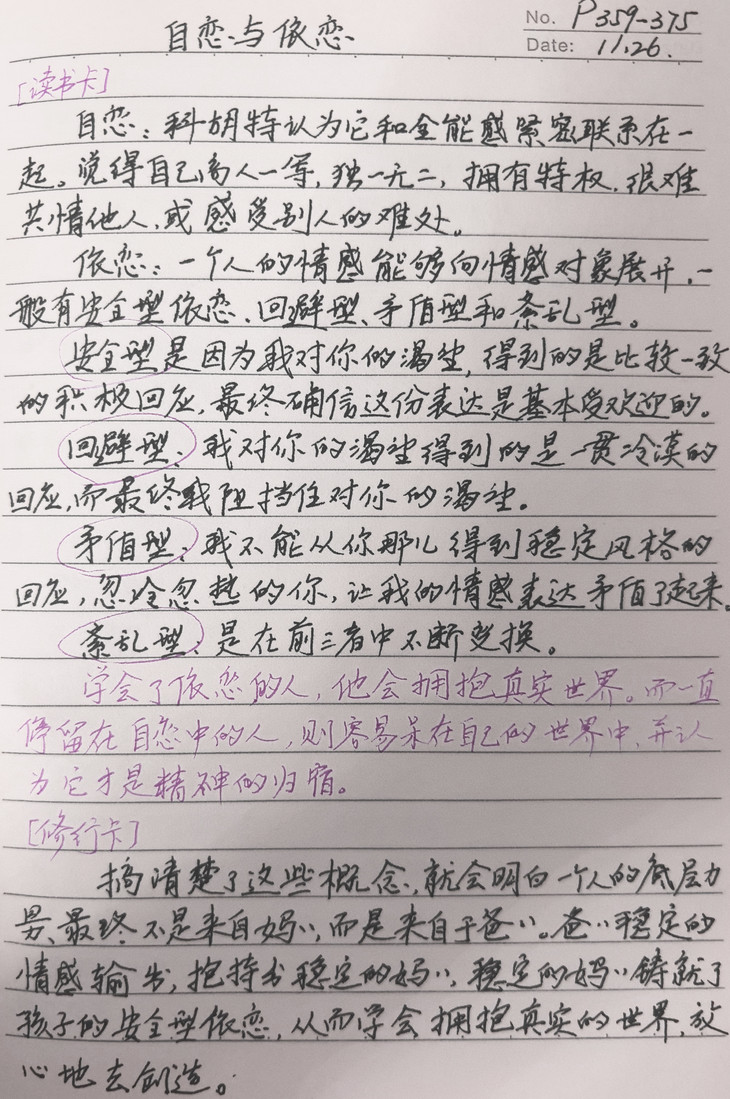 自恋与依恋
No. P359-375
Date: 11.26.
[读书卡]
自恋：科胡特认为它和全能感紧密联系在一
起。觉得自己高人一等，独一无二，拥有特权，很难
共情他人，或感受别人的难处。
依恋：一个人的情感能够向情感对象展开，一
般有安全型依恋、回避型、矛盾型和紊乱型。
安全型是因为我对你的渴望，得到的是比较一致
的积极回应，最终确信这份表达是基本受欢迎的。
回避型：我对你的渴望得到的是一贯冷漠的
回应，而最终我阻挡住对你的渴望。
矛盾型：我不能从你那儿得到稳定风格的
回应，忽冷忽热的你，让我的情感表达矛盾了起来。
紊乱型：是在前三者中不断变换。
学会了依恋的人，他会拥抱真实世界。而一直
停留在自恋中的人，则容易呆在自己的世界中，并认
为它才是精神的归宿。
[修行卡]
搞清楚了这些概念，就会明白一个人的底层力
量，最终不是来自妈〃，而是来自于爸〃。爸〃稳定的
情感输出，抱持出稳定的妈〃，稳定的妈〃铸就了
孩子的安全型依恋，从而学会拥抱真实的世界，放
心地去创造。